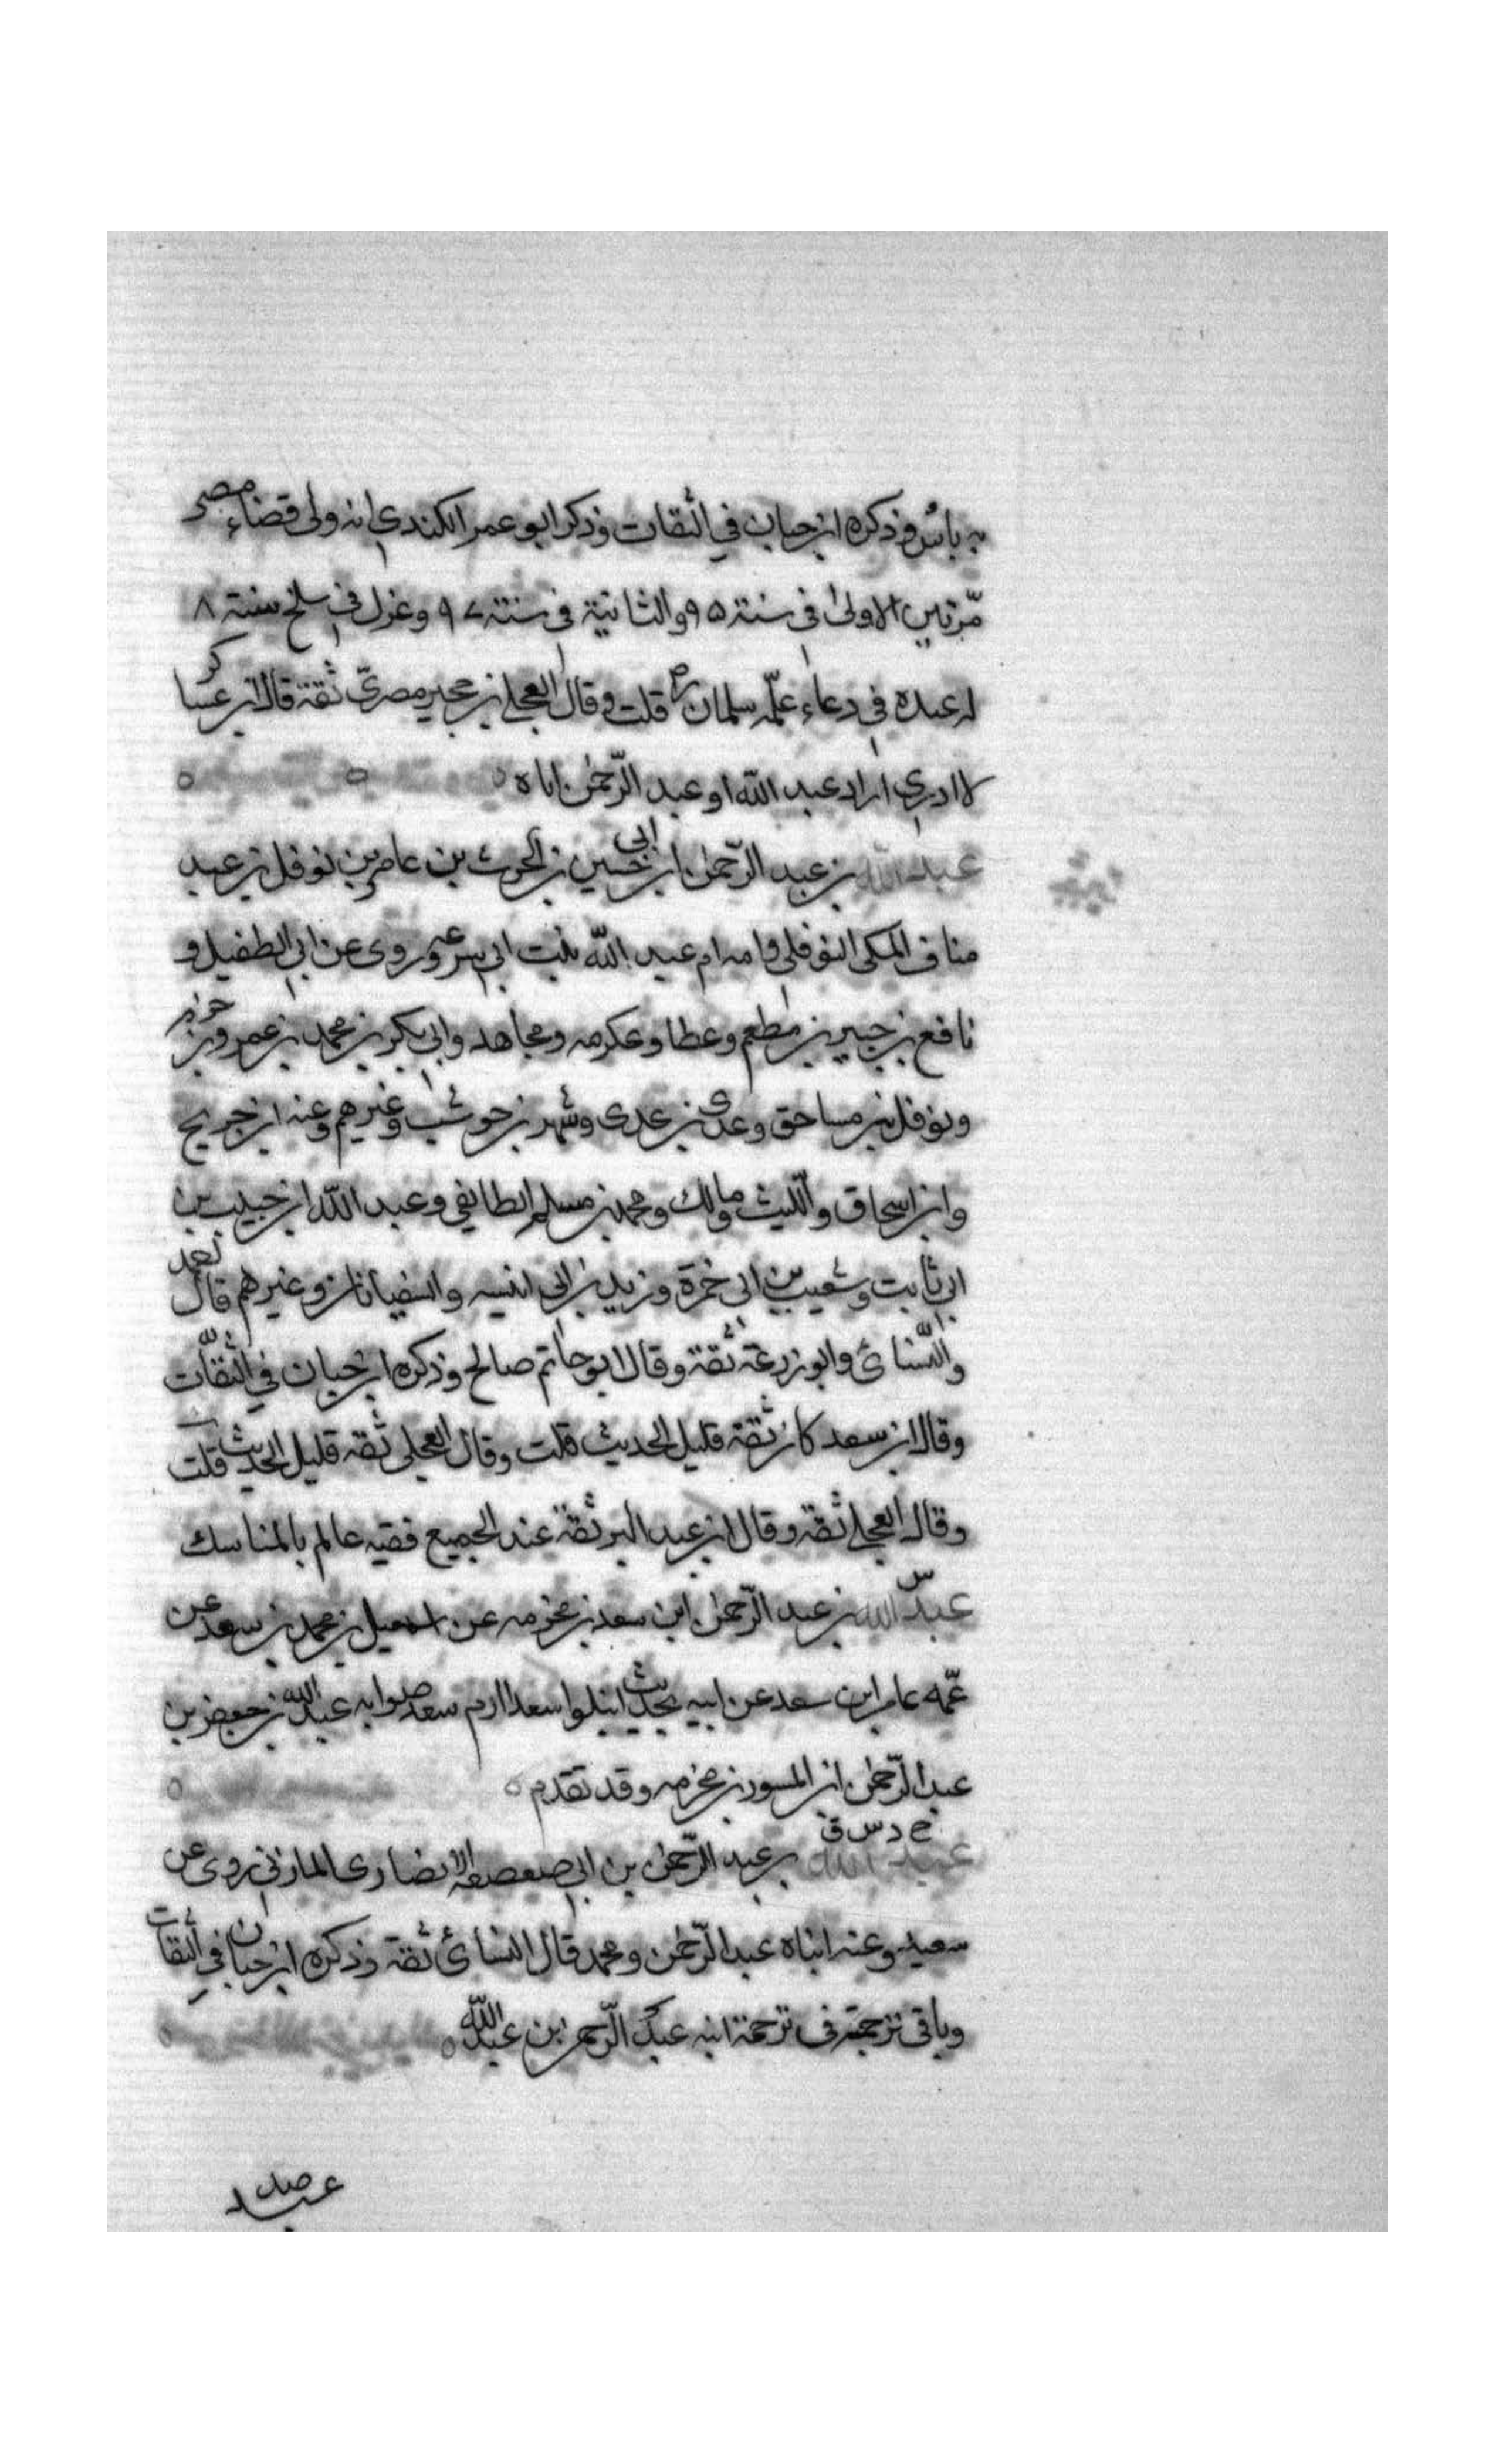 به باس وذكره ابن حبان في الثقات وذكر ابو عمر الكندي انه ولى قضاء مصر
مرتين الاولى فى سنة ٩٥ والثانية فى سنة ٩٧ وعزل فى سلخ سنة ٨
له عنده في دعاء علمه سلمان قلت وقال العجلي بن حجير مصرى ثقة قال ابن عساكر
لا ادري اراد عبد الله او عبد الرحمن اباه
عبد الله بن عبد الرحمن بن ابي حسين بن الحرث بن عامر بن نوفل بن عبد
مناف المكى النوفلي وامه ام عبد الله بنت ابي سروعه روى عن ابي الطفيل و
نافع بن جبير بن مطعم وعطا وعكرمه ومجاهد وابي بكر بن محمد بن عمرو بن حزم
ونوفل بن مساحق وعدى بن عدى وشهر بن حوشب وغيرهم وعنه ابن جريج
وابن اسحاق والليث ومالك ومحمد بن مسلم الطايفي وعبد الله ابن حبيب بن
ابي ثابت وشعيب بن ابى حمزة وزيد بن ابى انيسه والسفيانان وغيرهم قال احمد
والنسائ وابو زرعة ثقة وقال ابو حاتم صالح وذكره ابن حبان في الثقات
وقال ابن سعد كان ثقة قليل الحديث قلت وقال العجلى ثقه قليل الحديث قلت
وقال العجلي ثقه وقال ابن عبد البر ثقة عند الجميع فقيه عالم بالمناسك
س
عبد الله بن عبد الرحمن ابن سعد بن مخرمه عن اسمعيل بن محمد بن سعد عن
عمه عامر ابن سعد عن ابيه بحديث انبلوا سعدا ارم سعد صوابه عبد الله بن جعفر بن
عبد الرحمن ابن المسور بن مخرمه وقد تقدم
خ د س ق
عبد الله بن عبد الرحمن بن ابي صعصعه الانصارى المازني روى عن
سعيد وعنه ابناه عبد الرحمن ومحمد قال النسائ ثقة وذكره ابن حبان في الثقات
وباقى ترجمته فى ترجمة ابنه عبد الرحمن بن عبد الله